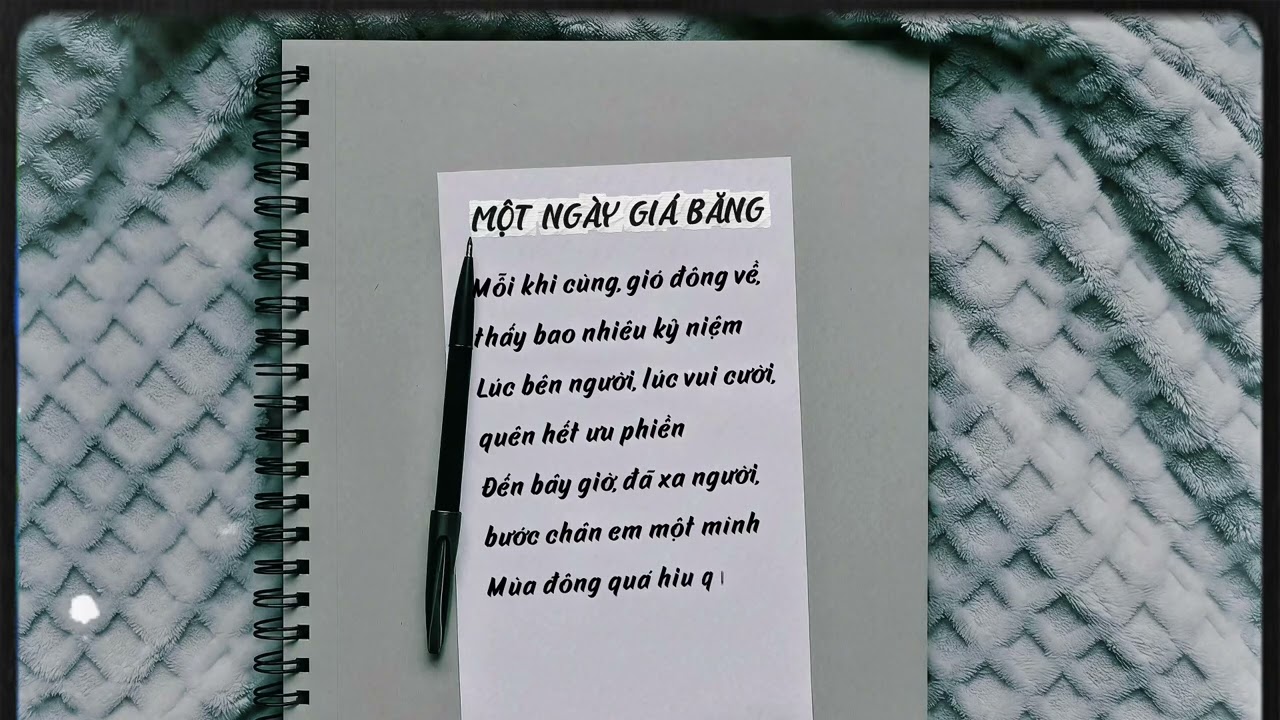 MỘT NGÀY GIÁ BĂNG
Mỗi khi cùng, gió đông về,
thấy bao nhiêu kỷ niệm
Lúc bên người, lúc vui cười,
quên hết ưu phiền
Đến bây giờ, đã xa người,
bước chân em một mình
Mùa đông quá hiu q